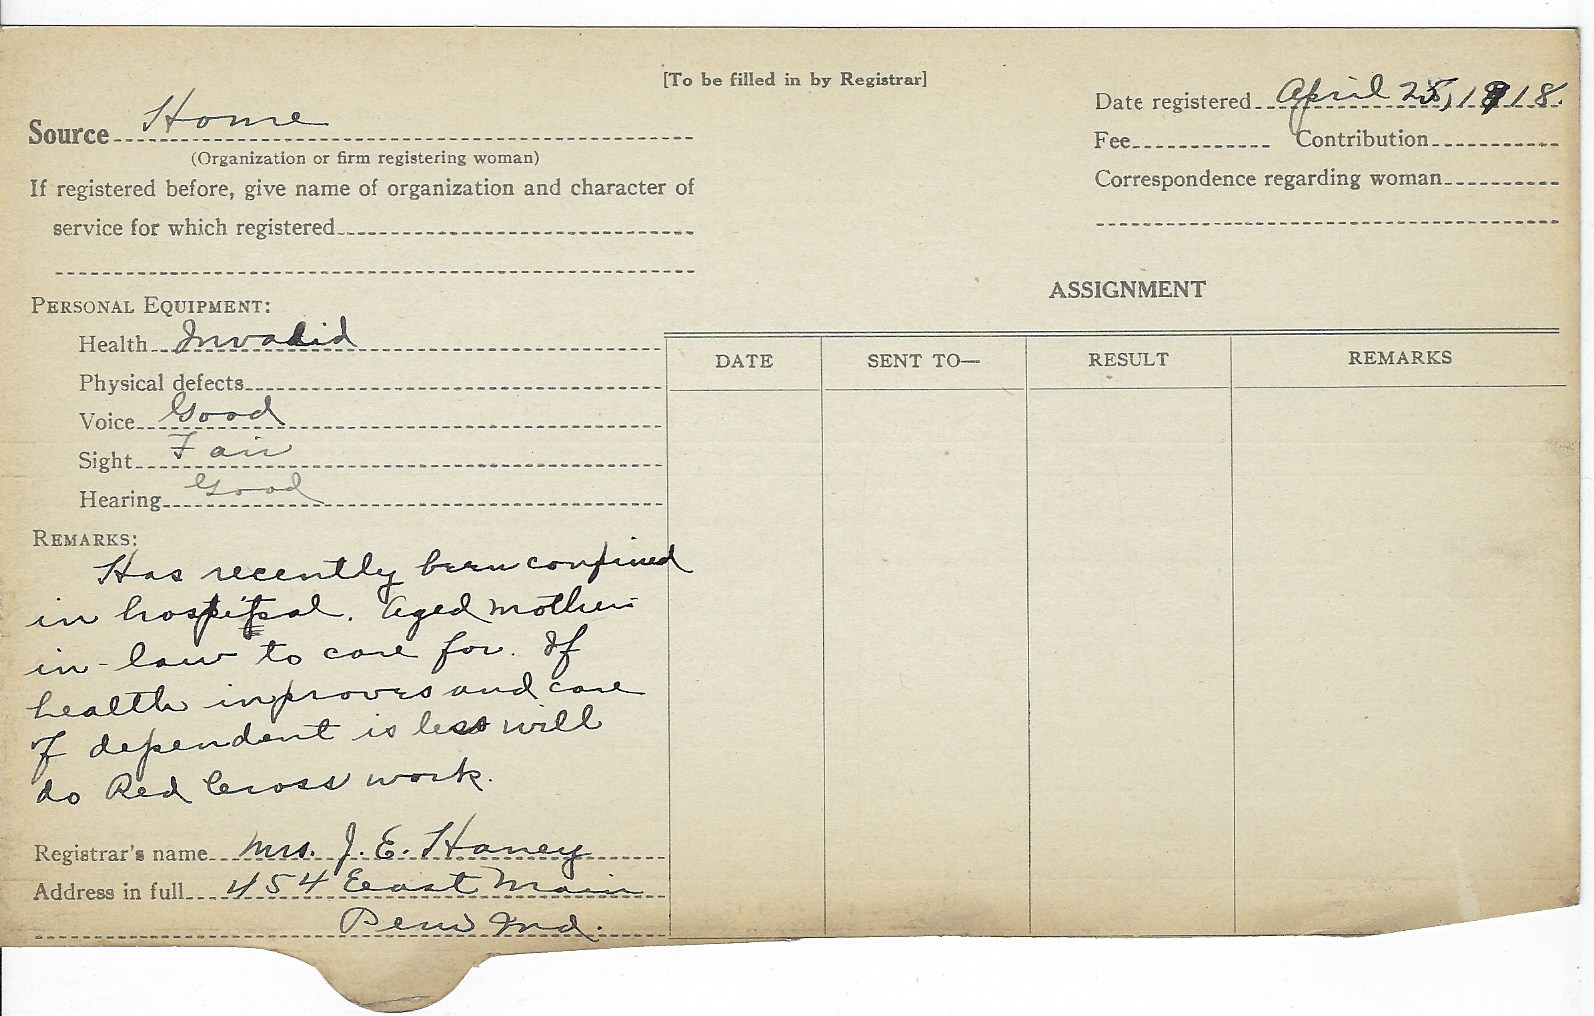 [To be filled in by Registrar]
Date registered April 25, 1918.
Source Home
(Organization or firm registering woman)
Fee Contribution
If registered before, give name of organization and character of
service for which registered
Correspondence regarding woman
ASSIGNMENT
DATE SENT TO— RESULT REMARKS
PERSONAL EQUIPMENT:
Health Invalid
Physical defects
Voice Good
Sight Fair
Hearing Good
REMARKS:
Has recently been confined
in hospital. Aged mother-
in-law to care for. If
health improves and care
of dependent is less will
do Red Cross work.
Registrar's name Mrs. J. E. Haney
Address in full 454 East Main
Peru Ind.